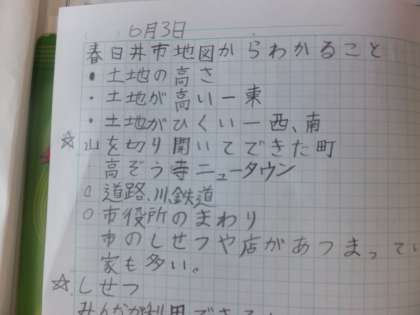 6月3日
春日井市地図からわかること
・土地の高さ
・土地が高いー東
・土地がひくいー西、南
☆山を切り開いてできた町
高ぞう寺ニュータウン
○道路、川、鉄道
○市役所のまわり
市のしせつや店があつまってい
家も多い。
☆しせつ
みんなが利用できる